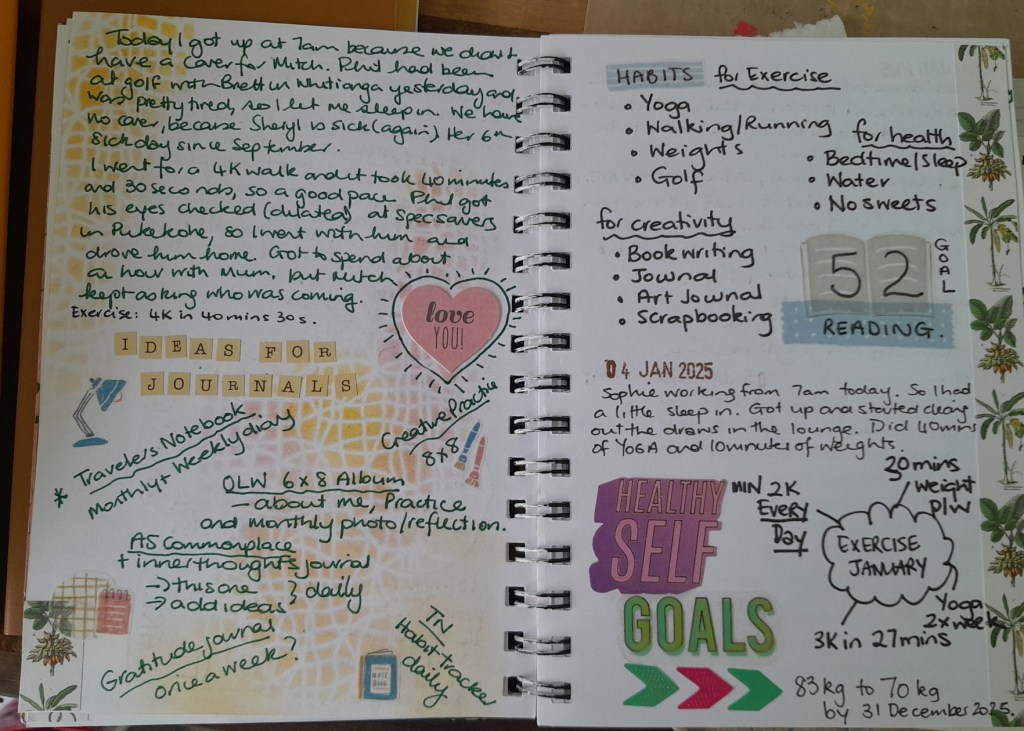 Today I got up at 7am because we didn't
have a cover for Mitch. Phil had been
at golf with Brett in Whitianga yesterday and
was pretty tired, so I let me sleep in. We have
no cover, because Sheryl is sick (again) Her 6th
sick day since September.
I went for a 4K walk and it took 40 minutes
and 30 seconds, so a good pace. Phil got
his eyes checked (dilated) at Specsavers
in Pukekohe, so I went with him and
drove him home. Got to spend about
an hour with Mum, but Mitch
kept asking who was coming.
Exercise: 4K in 40 mins 30s.
love
YOU!
IDEAS FOR
JOURNALS
Travelers Notebook
* Monthly + Weekly diary
Creative Practice
8x8
OLW 6x8 Album
- about me, Practice
and monthly photo/reflection.
A5 Commonplace
+ inner thoughts journal
→ this one } daily
→ add ideas
Gratitude journal
once a week?
TN
Habit-Tracker
daily
NOTE
BOOK
HABITS for Exercise
• Yoga
• Walking/Running
• Weights
• Golf
for health
• Bedtime/Sleep
• Water
• No sweets
for creativity
• Book writing
• Journal
• Art Journal
• Scrapbooking
52
GOAL
READING.
04 JAN 2025
Sophie working from 7am today. So I had
a little sleep in. Got up and started
out the draws in the lounge. Did 40mins
of YOGA and 10 minutes of weights.
HEALTHY
SELF
GOALS
MIN 2K
Every
Day
30 mins
weight
p/w
EXERCISE
JANUARY
Yoga
2x week
3K in 27 mins
83kg to 70kg
by 31 December 2025.